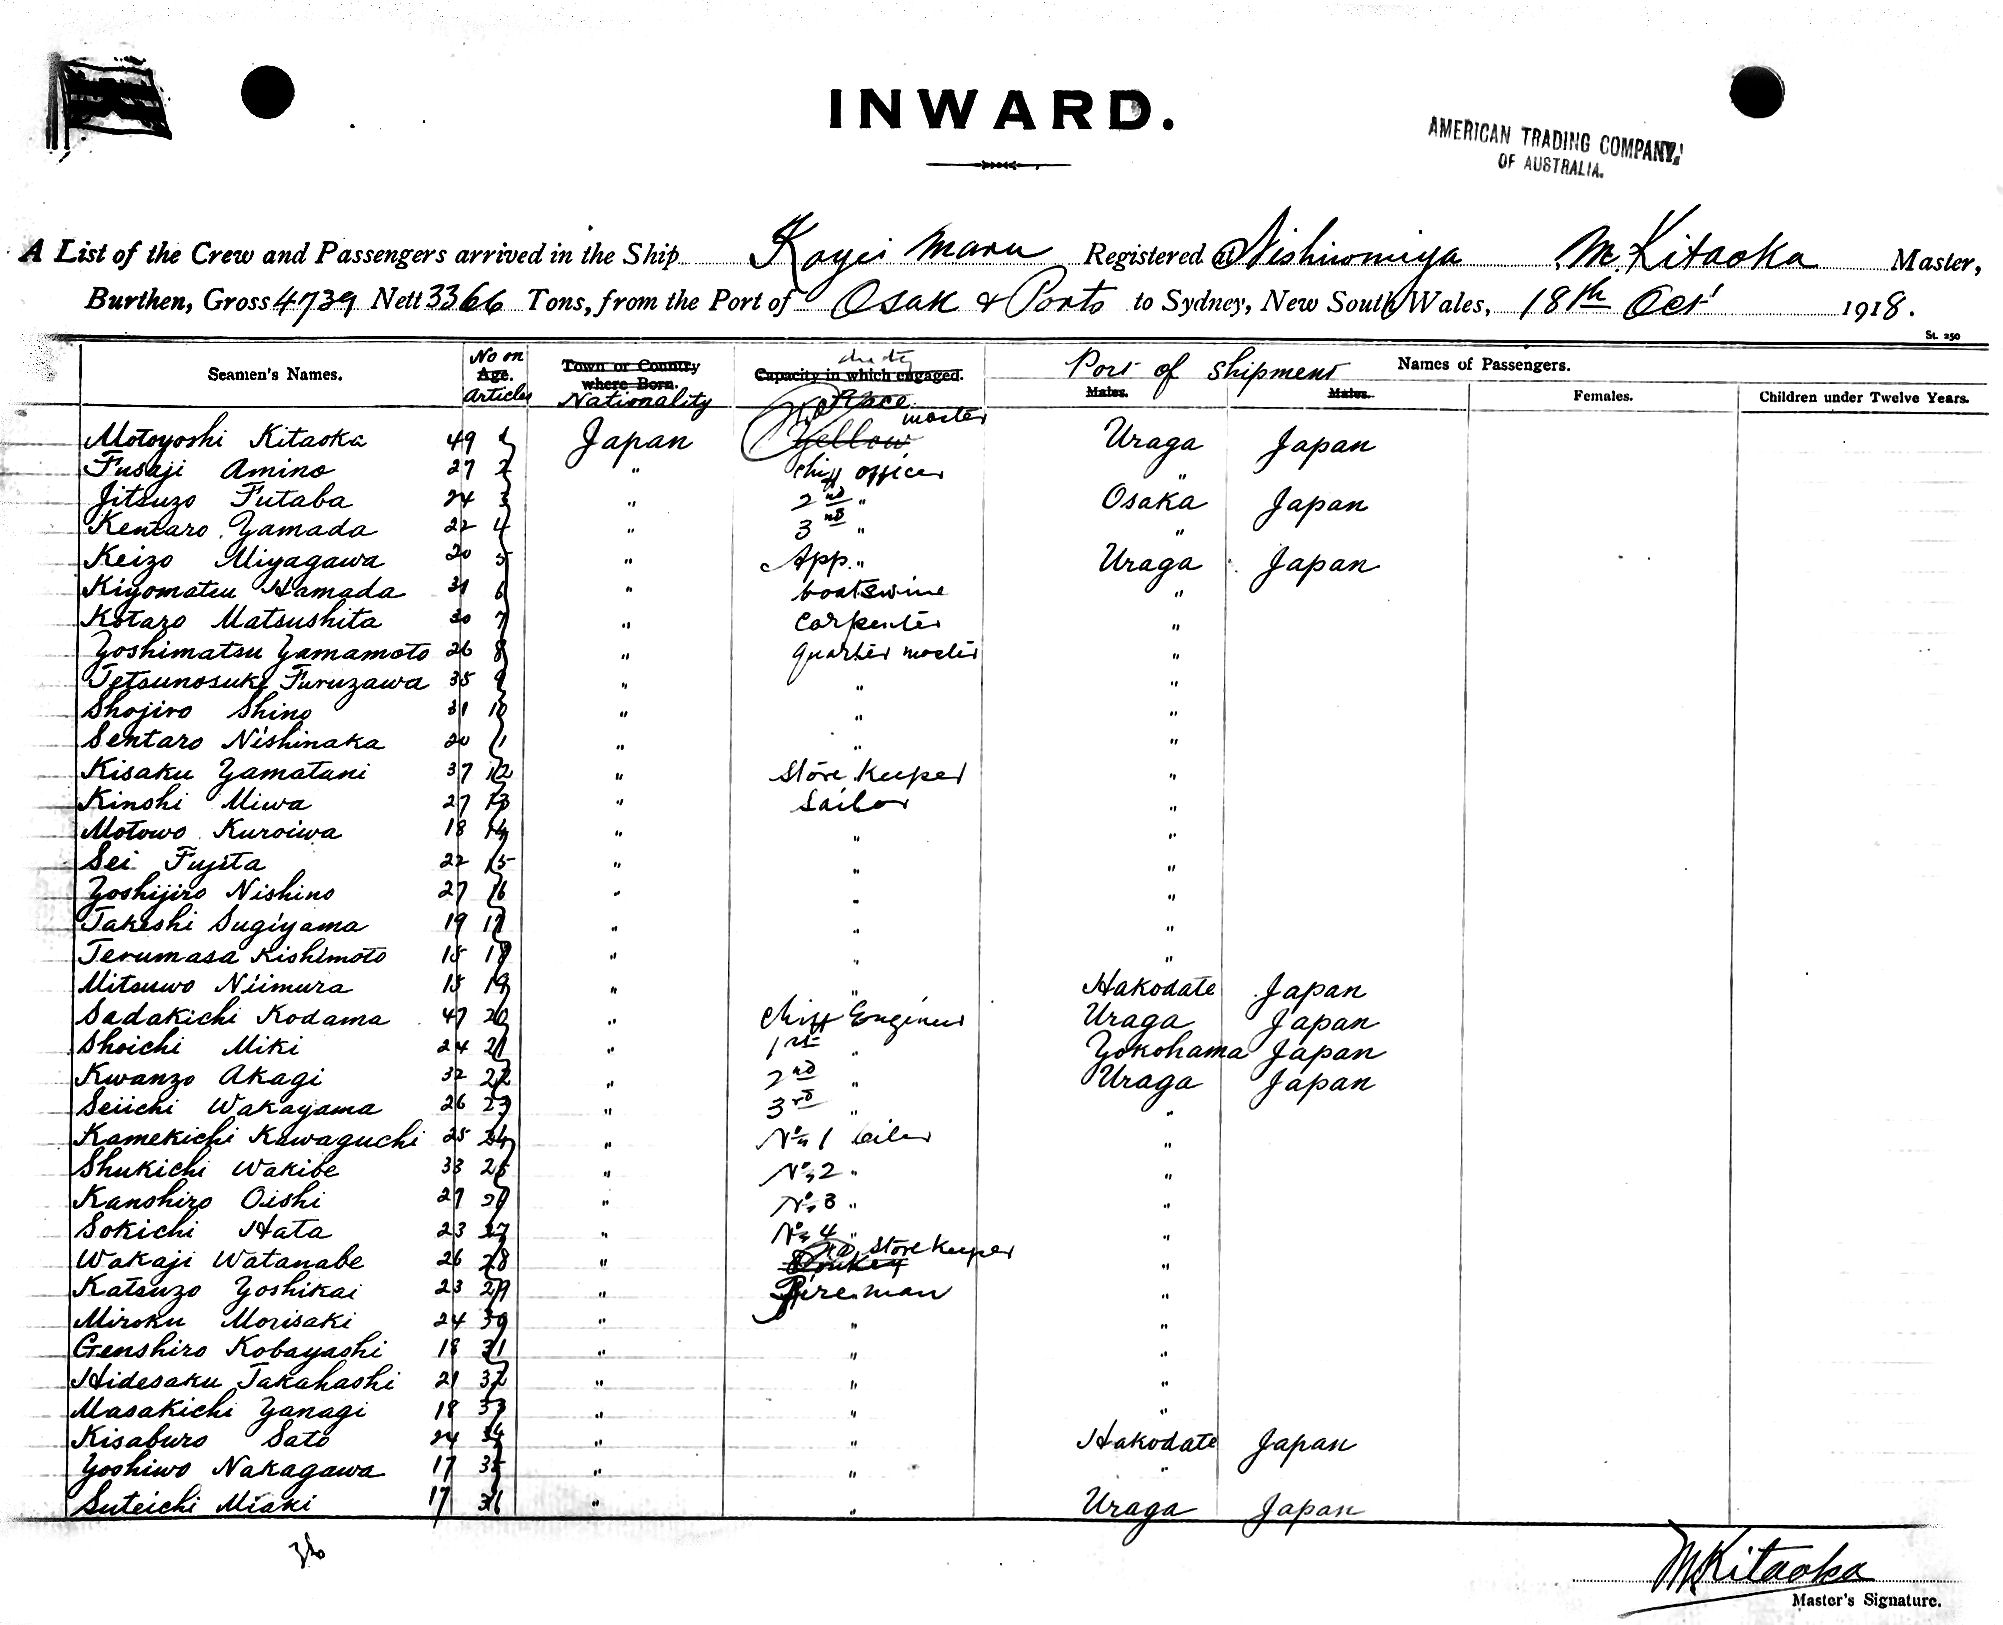 INWARD.
AMERICAN TRADING COMPANY.
OF AUSTRALIA.
A List of the Crew and Passengers arrived in the Ship Koyei Maru Registered Nishinomiya M. Kitaoka Master,
Burthen, Gross 4739 Nett 3366 Tons, from the Port of Osak & Ports to Sydney, New South Wales, 18th Oct 1918.
St. 250
Seamen's Names. No on Age. Articles Town or Country where Born. Nationality duty Capacity in which engaged. Race Port of Shipment Males. Males. Names of Passengers. Females. Children under Twelve Years.
Motoyoshi Kitaoka 49 1 Japan Yellow master Uraga Japan
Fusaji Amino 27 2 " Chief officer "
Jitsuzo Futaba 24 3 " 2nd " Osaka Japan
Kentaro Yamada 22 4 " 3rd " "
Keizo Miyagawa 20 5 " App. " Uraga Japan
Kiyomatsu Hamada 31 6 " boatswine "
Kotaro Matsushita 30 7 " Carpenter "
Yoshimatsu Yamamoto 26 8 " quarter master "
Tetsunosuke Furuzawa 35 9 " " "
Shojiro Shino 31 10 " " "
Sentaro Nishinaka 20 11 " " "
Kisaku Yamatani 37 12 " Store Keeper "
Kinshi Miwa 27 13 " Sailor "
Motowo Kuroiwa 18 14 " " "
Sei Fujita 22 15 " " "
Yoshijiro Nishino 27 16 " " "
Takeshi Sugiyama 19 17 " " "
Terumasa Kishimoto 15 18 " " "
Mitsuwo Niimura 15 19 " " Hakodate Japan
Sadakichi Kodama 47 20 " Chief Engineer Uraga Japan
Shoichi Miki 24 21 " 1st " Yokohama Japan
Kwanzo Akagi 32 22 " 2nd " Uraga Japan
Seiichi Wakayama 26 23 " 3rd " "
Kamekichi Kawaguchi 25 24 " No. 1 oiler "
Shukichi Wakibe 33 25 " No. 2 " "
Kanshiro Oishi 27 26 " No. 3 " "
Sokichi Hata 23 27 " No. 4 " "
Wakaji Watanabe 26 28 " Donkey Store Keeper "
Katsuzo Yoshikai 23 29 " Fireman "
Miroku Morisaki 24 30 " " "
Genshiro Kobayashi 18 31 " " "
Hidesaku Takahashi 21 32 " " "
Masakichi Yanagi 18 33 " " "
Kisaburo Sato 24 34 " " Hakodate Japan
Yoshiwo Nakagawa 17 35 " " "
Suteichi Miaki 17 36 " " Uraga Japan
36
M. Kitaoka
Master's Signature.